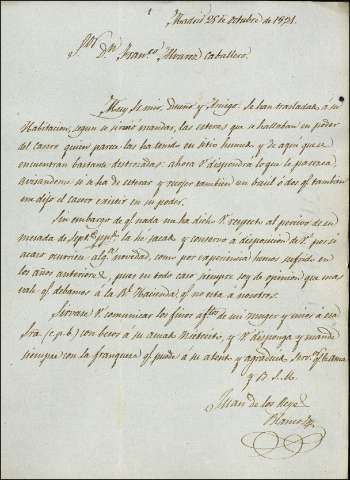 Madrid 28 de octubre de 1831.
Sor Dn Franco Alvarez Caballero.
Muy Sr mio, Dueño y Amigo: Se han trasladado a su
Habitacion, segun se sirvió mandar, las esteras que se hallaban en poder
del casero quien parece las ha tenido en sitio humedo y de aqui que se
encuentran bastante destrozadas: ahora V. dispondrá lo que le parezca
avisandome si se ha de esterar y recojer tambien un baul ó dos qe tambien
me dijo el casero existir en su poder.
Sin embargo de qe nada me ha dicho V. respecto al percivo de su
mesada de Septe la hé sacado y conservo á disposicion de V. por si
acaso ocurriese alga novedad, como por experiencia hemos sufrido en
los años anteriores, pues en todo caso siempre soy de opinion que mas
vale qe debamos á la Rl Hacienda qe no esta á nosotros.
Sirvase V. comunicar los finos aftos de mi muger y mios á esa
Sra (c.p.b.) con besos á su amado Nietecito, y V. disponga y mande
siempre con la franqueza qe puede á su atento y agradecido Servr qe le ama
y B. S. M.
Juan de los Reyes
Blanco